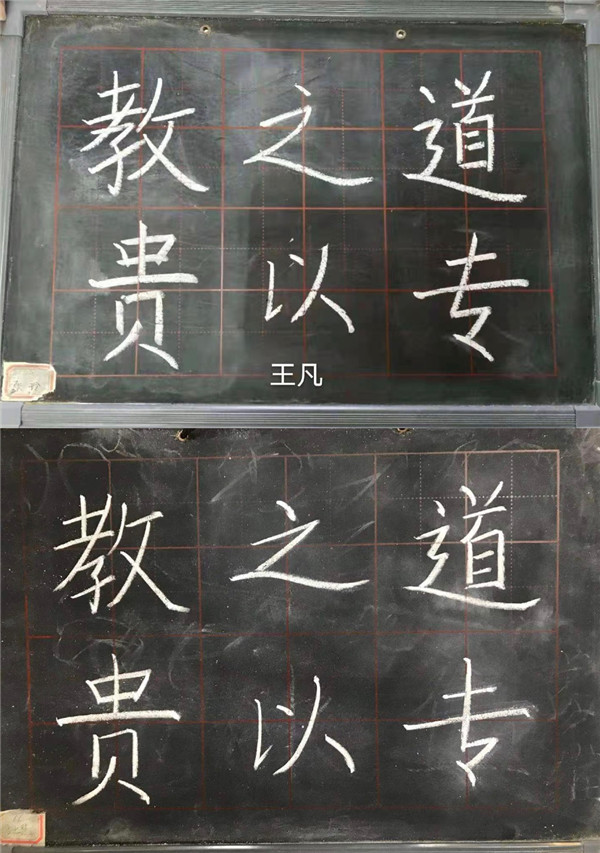 教之道
贵以专
王凡
教之道
贵以专